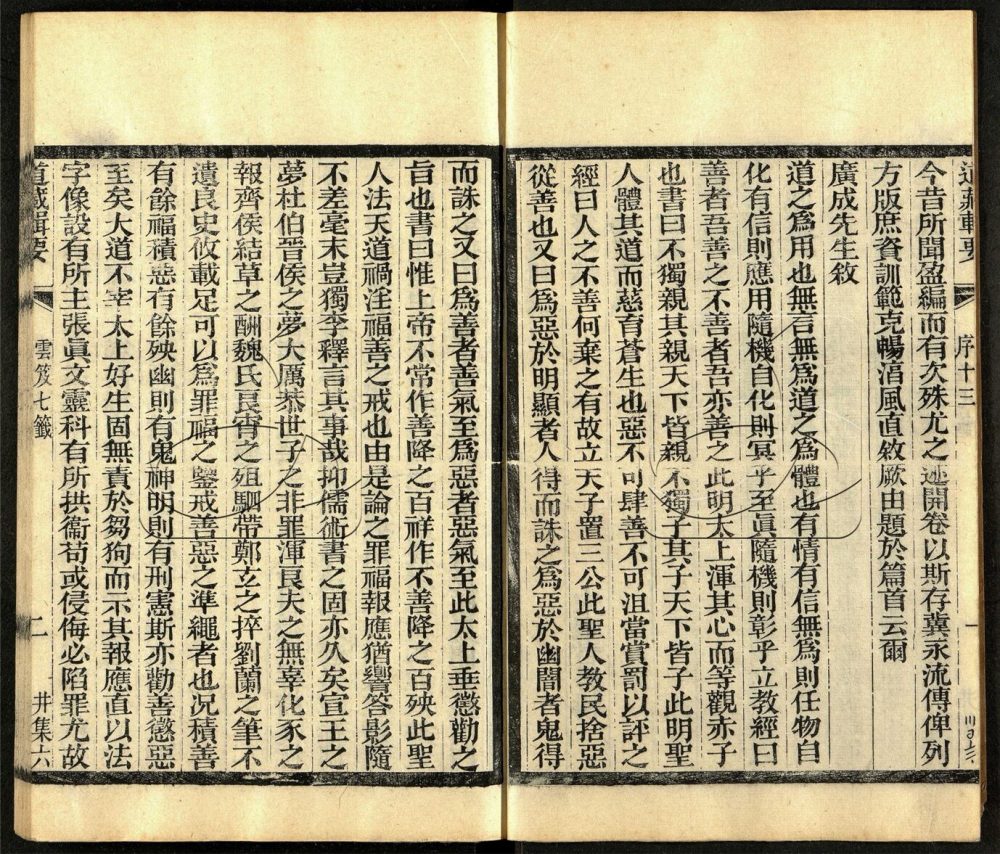 道藏輯要 序十三 一
今昔所聞盈編而有欠殊尤之迹開卷以斯存冀永流傳俾列
方版庶資訓範克暢湻風直敘厥由題於篇首云爾
廣成先生敘
道之爲用也無言無爲道之爲體也有情有信無爲則任物自
化有信則應用隨機自化則冥乎至眞隨機則彰乎立教經曰
善者吾善之不善者吾亦善之此明太上渾其心而等觀赤子
也書曰不獨親其親天下皆親不獨子其子天下皆子此明聖
人體其道而慈育蒼生也惡不可肆善不可沮當賞罰以評之
經曰人之不善何棄之有故立天子置三公此聖人教民捨惡
從善也又曰爲惡於明顯者人得而誅之爲惡於幽闇者鬼得
而誅之又曰爲善者善氣至爲惡者惡氣至此太上垂懲勸之
旨也書曰惟上帝不常作善降之百祥作不善降之百殃此聖
人法天道禍淫福善之戒也由是論之罪福報應猶響答影隨
不差毫末豈獨李釋言其事哉抑儒術書之固亦久矣宣王之
夢杜伯晉侯之夢大厲恭世子之非罪渾良夫之無辜化豕之
報齊侯結草之酬魏氏良宵之殂駟帶鄭立之捽劉蘭之筆不
遺良史攸載足可以爲罪福之鑒戒善惡之準繩者也况積善
有餘福積惡有餘殃幽則有鬼神明則有刑憲斯亦勸善懲惡
至矣大道不宰太上好生固無責於芻狗而示其報應直以法
字像設有所主張眞文靈科有所拱衞苟或侵侮必陷罪尤故
道藏輯要 雲笈七籤 二 井集六